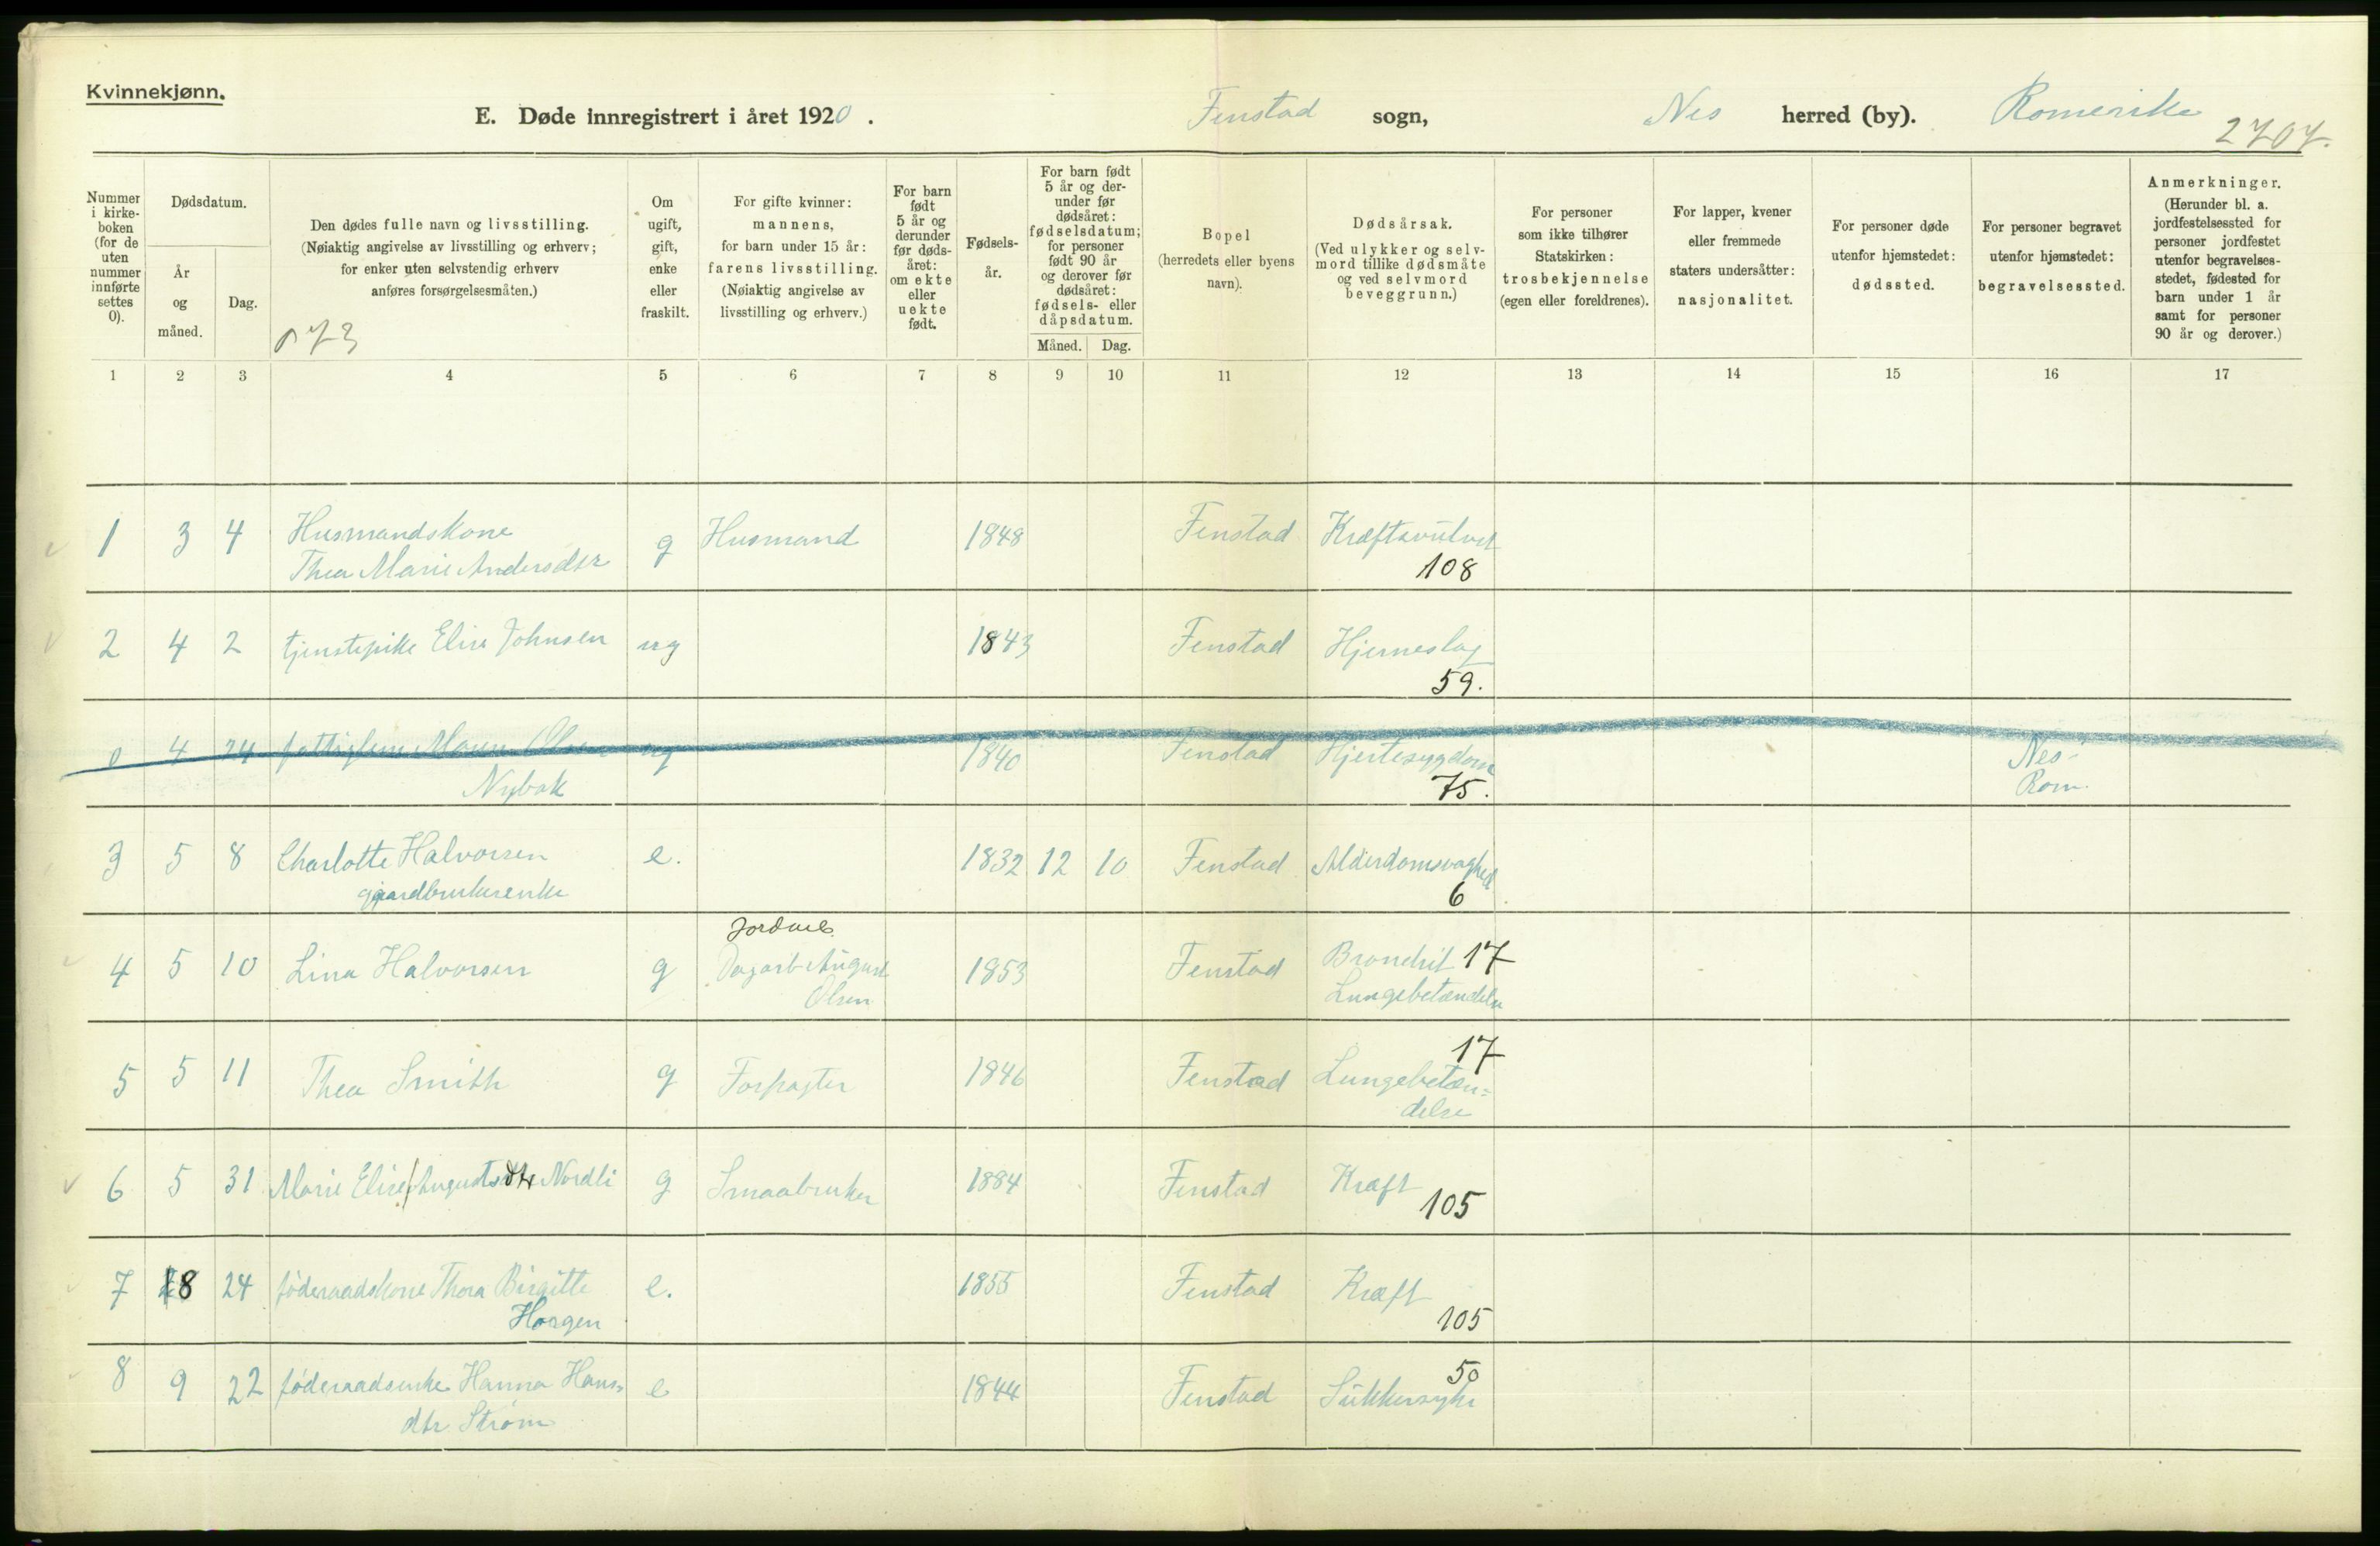 Kvinnekjønn.
E. Døde innregistrert i året 1920. Fenstad sogn, Nes herred (by). Romerike
2707.
Nummer i kirke- boken (for de uten nummer innførte settes 0).
Dødsdatum.
År og måned.
Dag.
Den dødes fulle navn og livsstilling.
(Nøiaktig angivelse av livsstilling og erhverv;
for enker uten selvstendig erhverv
anføres forsørgelsesmåten.)
Om ugift, gift, enke eller fraskilt.
For gifte kvinner:
mannens,
for barn under 15 år:
farens livsstilling.
(Nøiaktig angivelse av
livsstilling og erhverv.)
For barn født 5 år og derunder før døds- året: om ekte eller uekte født.
Fødsels- år.
For barn født 5 år og der- under før dødsåret: fødselsdatum; for personer født 90 år og derover før dødsåret: fødsels- eller dåpsdatum.
Måned. Dag.
Bopel
(herredets eller byens
navn).
Dødsårsak.
(Ved ulykker og selv-
mord tillike dødsmåte
og ved selvmord
beveggrunn.)
For personer
som ikke tilhører
Statskirken:
trosbekjennelse
(egen eller foreldrenes).
For lapper, kvener
eller fremmede
staters undersåtter:
nasjonalitet.
For personer døde
utenfor hjemstedet:
dødssted.
For personer begravet
utenfor hjemstedet:
begravelsessted.
Anmerkninger.
(Herunder bl. a.
jordfestelsessted for
personer jordfestet
utenfor begravelses-
stedet, fødested for
barn under 1 år
samt for personer
90 år og derover.)
1 2 3 4 5 6 7 8 9 10 11 12 13 14 15 16 17
1 3 4 Husmandskone g Husmand 1848 Fenstad
Thea Marie Andersdtr 108
2 4 2 tjenstepike Elise Johnsen ug 1843 Fenstad Hjerneslag
59.
0 4 24 ug 1840 Fenstad Hjertesygdom Nes-
Nybak 75. Rom.
3 5 8 Charlotte Halvorsen e. 1832 12 10 Fenstad Alderdomsvaghed
gaardbrukerenke 6
4 5 10 Lina Halvorsen g Dagarb August 1853 Fenstad Bronchit 17
Olsen Lungebetændelse
17
5 5 11 Thea Smith g Forpagter 1846 Fenstad Lungebetæn=
delse
6 5 31 Marie Elise Augustsdtr Nordli g Smaabruker 1884 Fenstad Kræft
105
7 8 24 føderaadskone Thora Birgitte e. 1855 Fenstad Kræft
Horgen 105
50
8 9 22 føderaadsenke Hanna Hans= e 1844 Fenstad Sukkersyke
dtr Strøm